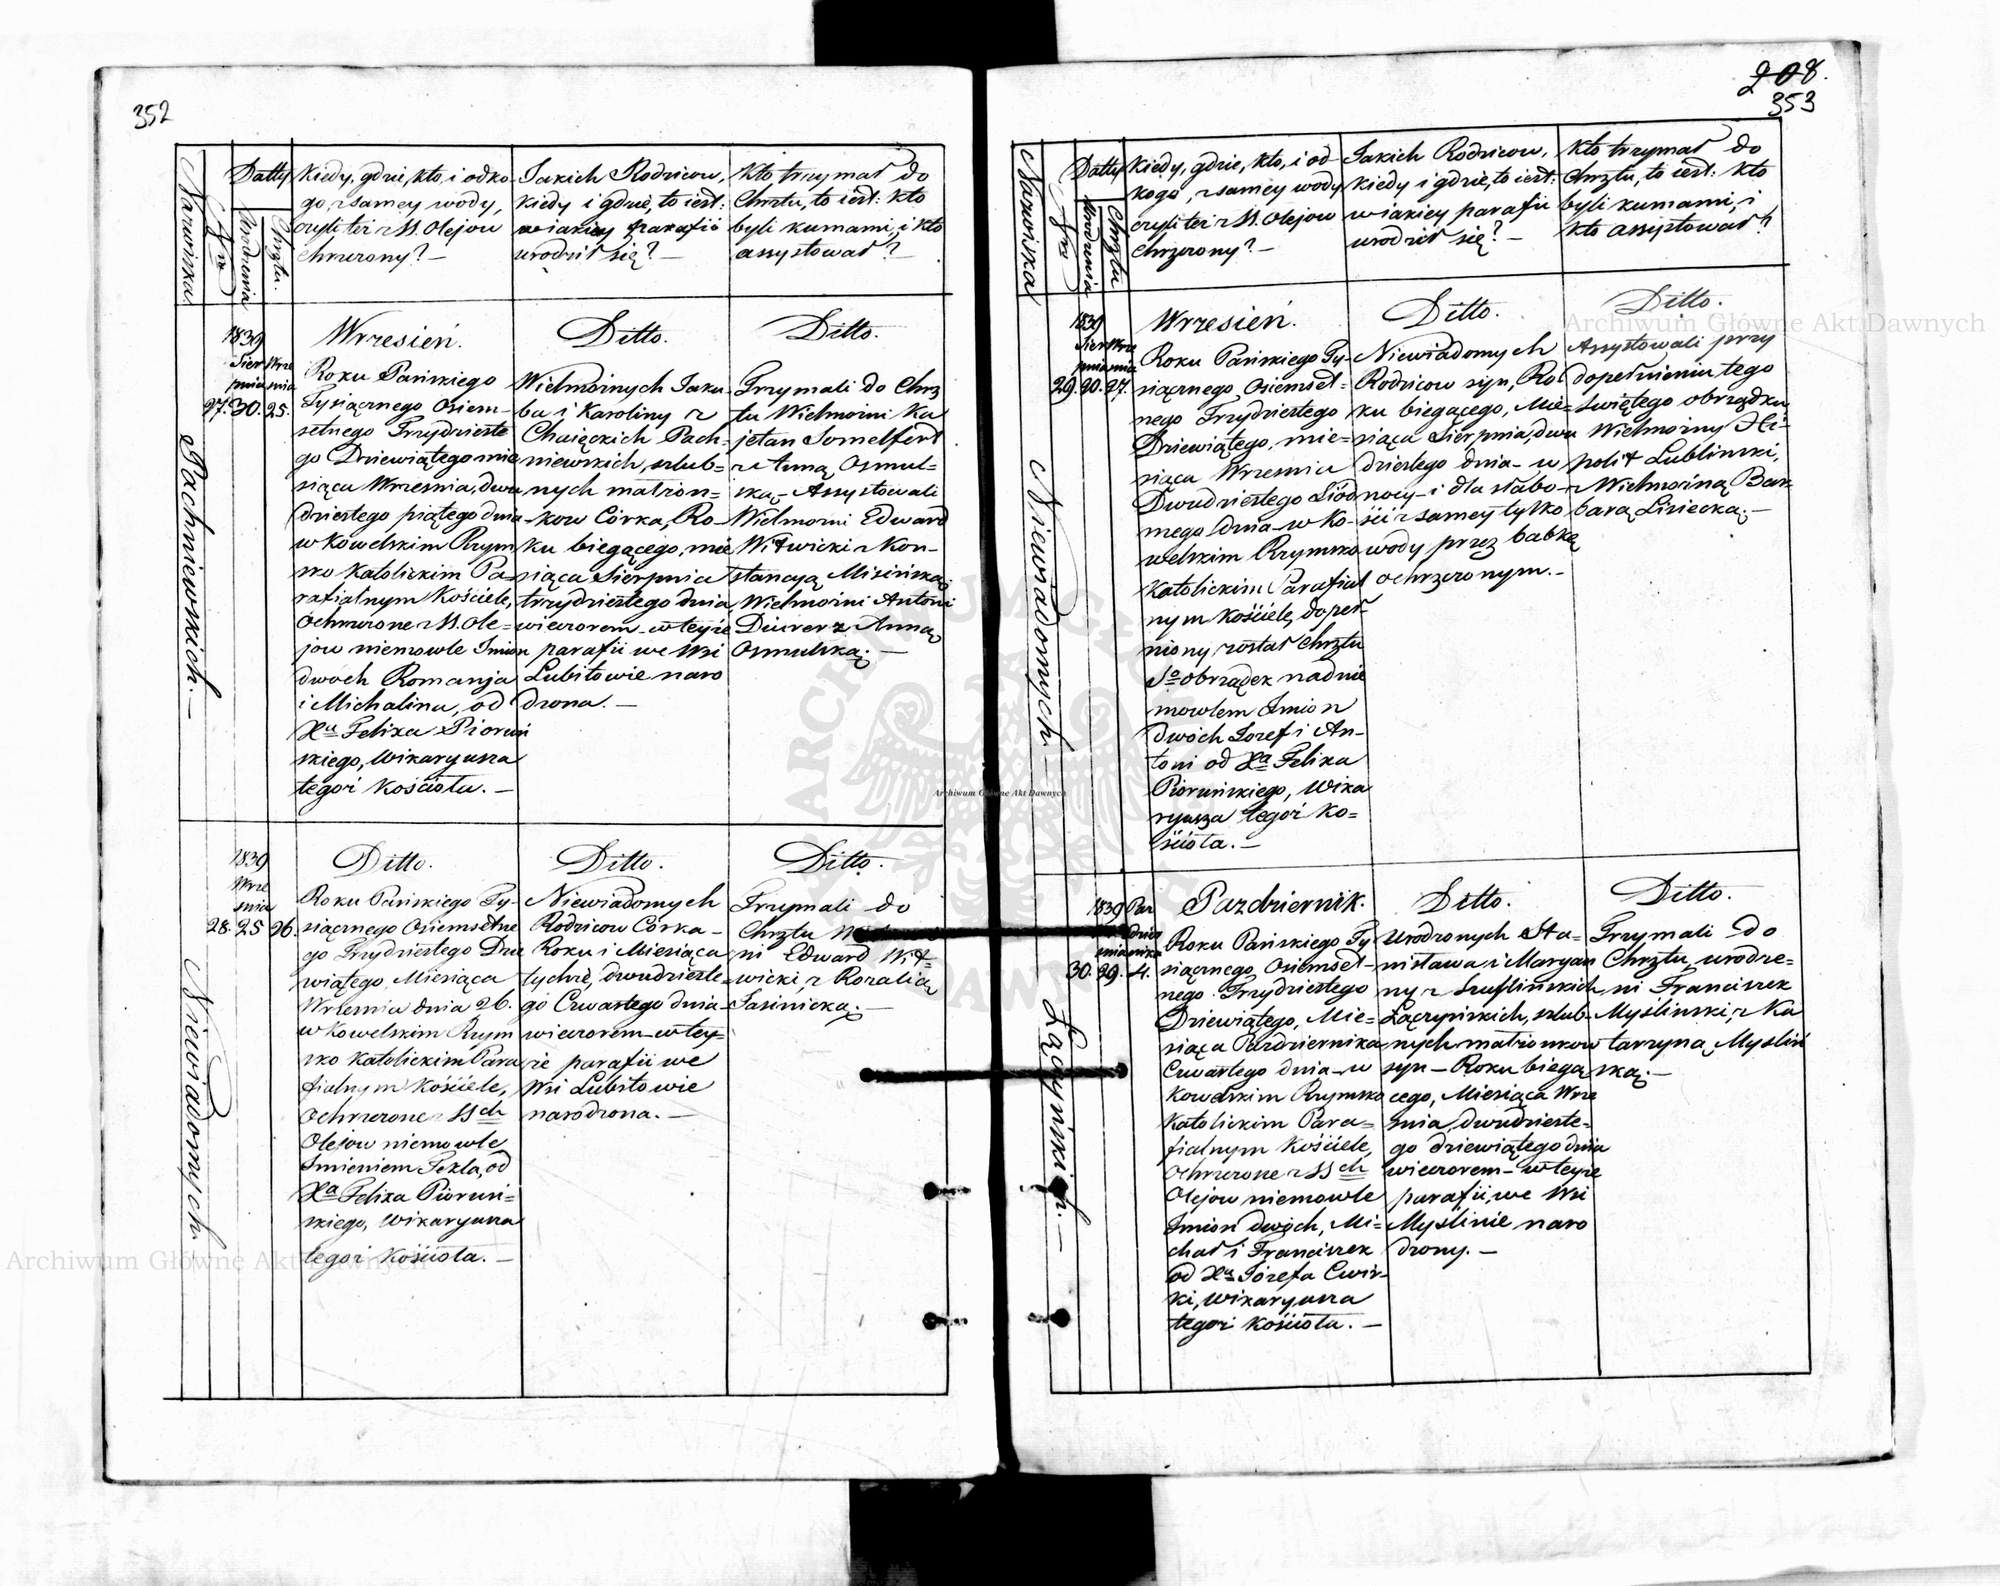 352
Nazwiska
Nro
Datty
Urodzenia
Chrztu.
Kiedy, gdzie, kto, i odko-
go, z samey wody,
czyli też z SS. Olejow
Chrzczony? —
Jakich Rodzicow,
kiedy i gdzie, to iest:
w iakiey parafii
urodził się? —
Kto trzymał do
Chrztu, to iest: kto
byli kumami, i kto
assystował? —
Pachniewskich. —
27.
1839
Sier
pnia
30.
Wrze
śnia
25.
Wrzesień.
Roku Pańskiego
Tysiącznego Osiem-
setnego Trzydzieste
go Dziewiątego mie
siąca Września, dwu
dziestego piątego dnia
w Kowelskim Rzym
sko Katolickim Pa-
rafialnym Kościele,
Ochrzczone z SS. Ole=
jow niemowle Imion
dwoch Romanja
i Michalina, od
Xa Felixa Pioruń
skiego, Wikaryusza
tegoż Kościoła. —
Ditto.
Wielmożnych Jaku-
ba i Karoliny z
Chaięckich Pach-
niewskich, szlub-
nych małżon=
kow Córka, Ro-
ku biegącego, mie
siąca Sierpnia
trzydziestego dnia,
wieczorem w teyże
parafii we Wsi
Lubitowie naro
dzona. —
Ditto.
Trzymali do Chrz
tu Wielmożni Ka
jetan Somelfert
z Anną Osmul=
ską, — Assystowali
Wielmożni Edward
Witwicki z Kon-
stancyą Misińską,
Wielmożni Antoni
Diwrer z Anną
Osmulską. —
Niewiadomych
28.
1839
Wrze
śnia
25
26.
Ditto.
Roku Pańskiego Ty-
siącznego Osiemsetne
go Trzydziestego Dzie
wiątego, Miesiąca
Września dnia 26.
w Kowelskim Rzym
sko Katolickim Para
fialnym Kościele,
Ochrzczone z SSch
Olejow niemowle
Imieniem Tekla, od
Xa Felixa Pioruń-
skiego, Wikaryusza
tegoż Kościoła. —
Ditto.
Niewiadomych
Rodzicow Córka —
Roku i Miesiąca
tychże, dwudzieste-
go Czwartego dnia
wieczorem w tey=
że parafii we
Wsi Lubitowie
narodzona. —
Ditto.
Trzymali do
Chrztu
ni Edward Wit-
wicki, z Rozalią
Jasinicką. —
208.
353
Nazwiska
Nro
Datty
Urodzenia
Chrztu
Kiedy, gdzie, kto, i od-
kogo, z samey wody
czyli też z SS. Olejow
Chrzczony? —
Jakich Rodzicow,
kiedy i gdzie, to iest:
w iakiey parafii
urodził się? —
Kto trzymał do
Chrztu, to iest: kto
byli kumami, i
kto assystował?
Niewiadomych
29.
1839
Sier
pnia
20.
Wrze
śnia
27.
Wrzesień.
Roku Pańskiego Ty-
siącznego, Osiemset-
nego Trzydziestego
Dziewiątego, mie=
siąca Września
Dwudziestego Siód
mego dnia w Ko-
welskim Rzymsko
Katolickim Parafial
nym Kościele, dopeł
niony został Chrztu
So obrządek nad nie
mowlem Imion
dwóch Jozef i An-
toni od Xa Felixa
Pioruńskiego, Wika
ryusza tegoż Ko=
ścioła. —
Ditto.
Niewiadomych
Rodzicow syn, Ro
ku biegącego, Mie=
siąca Sierpnia, dwu
dziestego dnia w
nocy i dla słabo-
ści z samey tylko
wody przez babkę
ochrzczonym. —
Ditto.
Assystowali przy
dopełnieniu tego
Swiętego obrządku
Wielmożny Hi-
polit Lubliński,
z Wielmożną Bar
barą Lisiecką. —
Łączyńskich. —
30.
1839
śnia
29.
Paz
dzier
nika
4.
Pazdziernik.
Roku Pańskiego Ty
siącznego, Osiemset-
nego Trzydziestego
Dziewiątego, Mie=
siąca Pazdziernika
Czwartego dnia w
Kowelskim Rzymsko
Katolickim Para=
fialnym Kościele,
Ochrzczone z SSch
Olejow niemowle
Imion dwóch, Mi=
chał i Franciszek
od Xa Józefa Cwir-
ki, Wikaryusza
tegoż Kościoła. —
Ditto.
Urodzonych Sta-
nisława i Maryan
ny z Szuflińskich
Łączyńskich, szlub-
nych małżonkow
syn — Roku biegą
cego, Miesiąca Wrze
śnia, dwudzieste-
go dziewiątego dnia
wieczorem w teyże
parafii, we Wsi
Myślinie naro
dzony. —
Ditto.
Trzymali do
Chrztu, urodze=
ni Franciszek
Myśliński, z Ka
tarzyną Myśliń
ską. —
Archiwum Główne Akt Dawnych
Archiwum Główne Akt Dawnych
Archiwum Główne Akt Dawnych